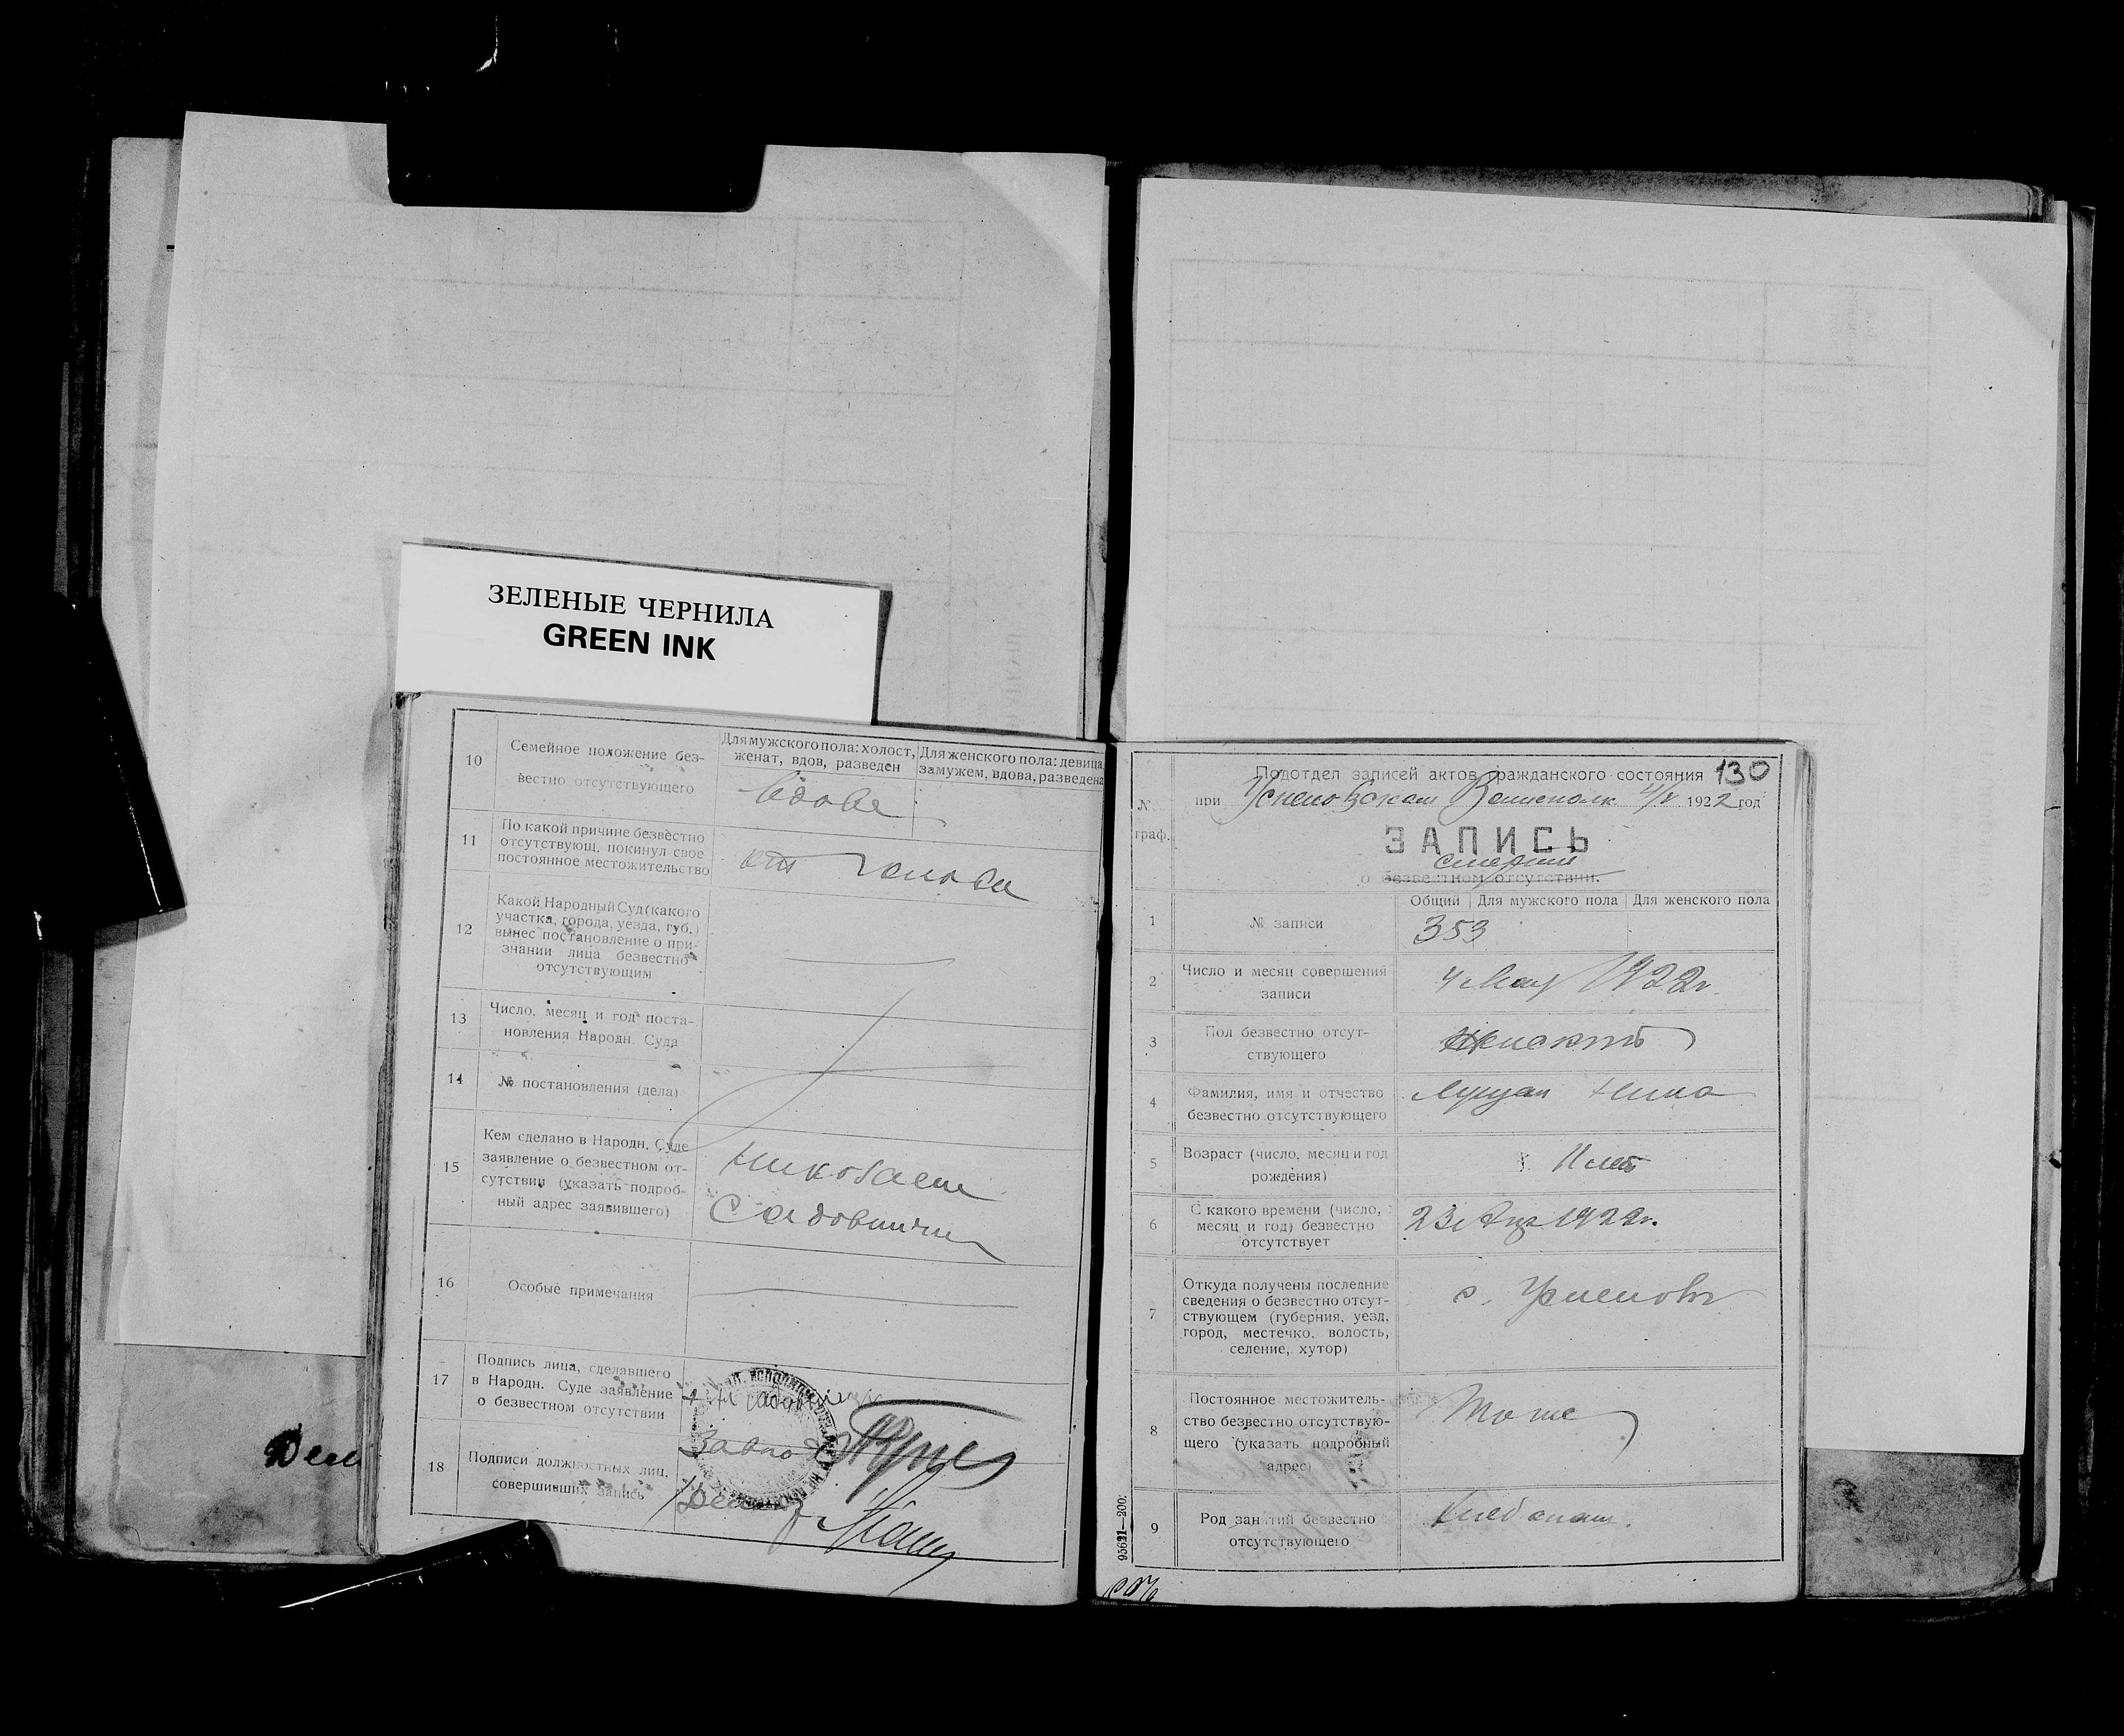 ЗЕЛЕНЫЕ ЧЕРНИЛА
GREEN INK
10
Семейное положение без-
вестно отсутствующего
Для мужского пола: холост,
женат, вдов, разведен
Для женского пола: девица,
замужем, вдова, разведена
вдова
11
По какой причине безвестно
отсутствующ. покинул свое
постоянное местожительство
от голода
12
Какой Народный Суд (какого
участка, города, уезда, губ.)
вынес постановление о при-
знании лица безвестно
отсутствующим
13
Число, месяц и год поста-
новления Народн. Суда
14
№ постановления (дела)
15
Кем сделано в Народн. Суде
заявление о безвестном от-
сутствии (указать подроб-
ный адрес заявившего)
Николаем
16
Особые примечания
17
Подпись лица, сделавшего
в Народн. Суде заявление
о безвестном отсутствии
18
Подписи должностных лиц,
совершивших запись
130
Подотдел записей актов гражданского состояния
при 4/V 1922 год
№
граф.
ЗАПИСЬ
смерти
о безвестном отсутствии.
Общий
Для мужского пола
Для женского пола
1
№ записи
353
2
Число и месяц совершения
записи
4 Мая 1922 г.
3
Пол безвестно отсут-
ствующего
4
Фамилия, имя и отчество
безвестно отсутствующего
5
Возраст (число, месяц и год
рождения)
лет
6
С какого времени (число,
месяц и год) безвестно
отсутствует
23 1922 г.
7
Откуда получены последние
сведения о безвестно отсут-
ствующем (губерния, уезд,
город, местечко, волость,
селение, хутор)
с.
8
Постоянное местожитель-
ство безвестно отсутствую-
щего (указать подробный
адрес)
Тоже
9
Род занятий безвестно
отсутствующего
Хлебопаш.
95621—200.